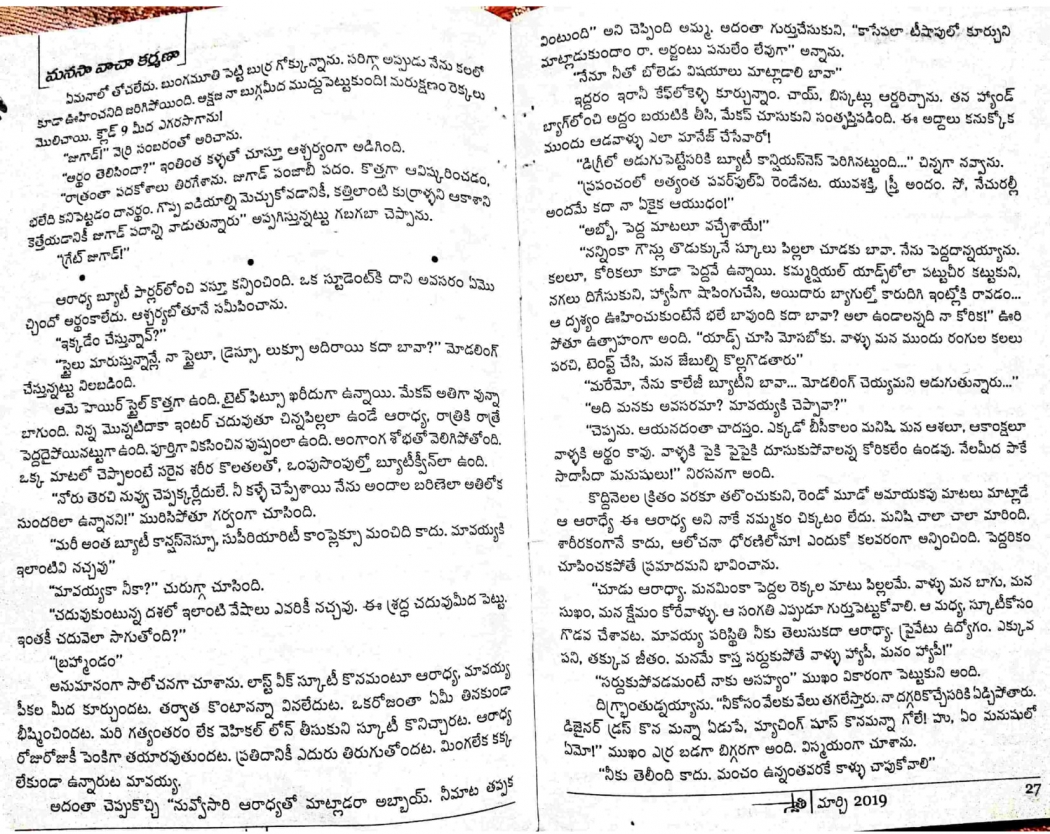 మనసా వాచా కర్మణా
ఏమనాలో తోచలేదు. బుంగమూతి పెట్టి బుర్ర గోక్కున్నాను. సరిగ్గా అప్పుడు నేను కలలో
కూడా ఊహించనిది జరిగిపోయింది. ఆక్షణ నా బుగ్గమీద ముద్దుపెట్టుకుంది! మరుక్షణం రెక్కలు
మొలిచాయి. క్లౌడ్ 9 మీద ఎగరసాగాను!
"జుగాడ్!" వెర్రి సంబరంతో అరిచాను.
"అర్థం తెలిసిందా?" ఇంతింత కళ్ళతో చూస్తూ ఆశ్చర్యంగా అడిగింది.
"రాత్రంతా పదకోశాలు తిరగేశాను. జుగాడ్ పంజాబీ పదం. కొత్తగా ఆవిష్కరించడం,
భలేది కనిపెట్టడం దానర్థం. గొప్ప ఐడియాల్ని మెచ్చుకోవడానికీ, కత్తిలాంటి కుర్రాళ్ళని ఆకాశాని
కెత్తేయడానికీ జుగాడ్ పదాన్ని వాడుతున్నారు" అప్పగిస్తున్నట్టు గబగబా చెప్పాను.
"గ్రేట్ జుగాడ్!"
• • •
ఆరాధ్య బ్యూటీ పార్లర్‌లోంచి వస్తూ కన్పించింది. ఒక స్టూడెంట్‌కి దాని అవసరం ఏమొ
చ్చిందో అర్థంకాలేదు. ఆశ్చర్యబోతూనే సమీపించాను.
"ఇక్కడేం చేస్తున్నావ్?"
"స్టైలు మారుస్తున్నాన్లే. నా స్టైలూ, డ్రెస్సూ, లుక్సూ అదిరాయి కదా బావా?" మోడలింగ్
చేస్తున్నట్టు నిలబడింది.
ఆమె హెయిర్ స్టైల్ కొత్తగా ఉంది. టైట్ ఫిట్సూ ఖరీదుగా ఉన్నాయి. మేకప్ అతిగా వున్నా
బాగుంది. నిన్న మొన్నటిదాకా ఇంటర్ చదువుతూ చిన్నపిల్లలా ఉండే ఆరాధ్య, రాత్రికి రాత్రే
పెద్దదైపోయినట్టుగా ఉంది. పూర్తిగా వికసించిన పుష్పంలా ఉంది. అంగాంగ శోభతో వెలిగిపోతోంది.
ఒక్క మాటలో చెప్పాలంటే సరైన శరీర కొలతలతో, ఒంపుసొంపుల్తో బ్యూటీక్వీన్‌లా ఉంది.
"నోరు తెరచి నువ్వు చెప్పక్కర్లేదులే. నీ కళ్ళే చెప్పేశాయి నేను అందాల బరిణెలా అతిలోక
సుందరిలా ఉన్నానని!" మురిసిపోతూ గర్వంగా చూసింది.
"మరీ అంత బ్యూటీ కాన్షస్‌నెస్సూ, సుపీరియారిటీ కాంప్లెక్సూ మంచిది కాదు. మావయ్యకి
ఇలాంటివి నచ్చవు"
"మావయ్యకా నీకా?" చురుగ్గా చూసింది.
"చదువుకుంటున్న దశలో ఇలాంటి వేషాలు ఎవరికీ నచ్చవు. ఈ శ్రద్ధ చదువుమీద పెట్టు.
ఇంతకీ చదువెలా సాగుతోంది?"
"బ్రహ్మాండం"
అనుమానంగా సాలోచనగా చూశాను. లాస్ట్ వీక్ స్కూటీ కొనమంటూ ఆరాధ్య, మావయ్య
పీకల మీద కూర్చుందట. తర్వాత కొంటానన్నా వినలేదుట. ఒకరోజంతా ఏమీ తినకుండా
భీష్మించిందట. మరి గత్యంతరం లేక వెహికల్ లోన్ తీసుకుని స్కూటీ కొనిచ్చారట. ఆరాధ్య
రోజురోజుకీ పెంకిగా తయారవుతుందట. ప్రతిదానికీ ఎదురు తిరుగుతోందట. మింగలేక కక్క
లేకుండా ఉన్నారుట మావయ్య.
అదంతా చెప్పుకొచ్చి "నువ్వోసారి ఆరాధ్యతో మాట్లాడరా అబ్బాయ్. నీమాట తప్పక
వింటుంది" అని చెప్పింది అమ్మ. అదంతా గుర్తుచేసుకుని, "కాసేపలా టీషాపులో కూర్చుని
మాట్లాడుకుందాం రా. అర్జంటు పనులేం లేవుగా" అన్నాను.
"నేనూ నీతో బోలెడు విషయాలు మాట్లాడాలి బావా"
ఇద్దరం ఇరానీ కేఫ్‌లోకెళ్ళి కూర్చున్నాం. చాయ్, బిస్కట్లు ఆర్డరిచ్చాను. తన హ్యాండ్
బ్యాగ్‌లోంచి అద్దం బయటికి తీసి, మేకప్ చూసుకుని సంతృప్తిపడింది. ఈ అద్దాలు కనుక్కోక
ముందు ఆడవాళ్ళు ఎలా మానేజ్ చేసేవారో!
"డిగ్రీలో అడుగుపెట్టేసరికి బ్యూటీ కాన్షియస్‌నెస్ పెరిగినట్టుంది..." చిన్నగా నవ్వాను.
"ప్రపంచంలో అత్యంత పవర్‌ఫుల్‌వి రెండేనట. యువశక్తి, స్త్రీ అందం. సో, నేచురల్లీ
అందమే కదా నా ఏకైక ఆయుధం!"
"అబ్బో, పెద్ద మాటలూ వచ్చేశాయే!"
"నన్నింకా గౌన్లు తొడుక్కునే స్కూలు పిల్లలా చూడకు బావా. నేను పెద్దదాన్నయ్యాను.
కలలూ, కోరికలూ కూడా పెద్దవే ఉన్నాయి. కమ్మర్షియల్ యాడ్స్‌లోలా పట్టుచీర కట్టుకుని,
నగలు దిగేసుకుని, హ్యాపీగా షాపింగుచేసి, అయిదారు బ్యాగుల్తో కారుదిగి ఇంట్లోకి రావడం...
ఆ దృశ్యం ఊహించుకుంటేనే భలే బావుంది కదా బావా? అలా ఉండాలన్నది నా కోరిక!" ఊరి
పోతూ ఉత్సాహంగా అంది. "యాడ్స్ చూసి మోసబోకు. వాళ్ళు మన ముందు రంగుల కలలు
పరచి, టెంప్ట్ చేసి, మన జేబుల్ని కొల్లగొడతారు"
"మరేమో, నేను కాలేజీ బ్యూటీని బావా... మోడలింగ్ చెయ్యమని అడుగుతున్నారు..."
"అది మనకు అవసరమా? మావయ్యకి చెప్పావా?"
"చెప్పను. ఆయనదంతా చాదస్తం. ఎక్కడో బీసీకాలం మనిషి. మన ఆశలూ, ఆకాంక్షలూ
వాళ్ళకి అర్థం కావు. వాళ్ళకి పైకి పైపైకి దూసుకుపోవాలన్న కోరికలేం ఉండవు. నేలమీద పాకే
సాదాసీదా మనుషులు!" నిరసనగా అంది.
కొద్దినెలల క్రితం వరకూ తలొంచుకుని, రెండో మూడో అమాయకపు మాటలు మాట్లాడే
ఆ ఆరాధ్యే ఈ ఆరాధ్య అని నాకే నమ్మకం చిక్కటం లేదు. మనిషి చాలా చాలా మారింది.
శారీరకంగానే కాదు, ఆలోచనా ధోరణిలోనూ! ఎందుకో కలవరంగా అన్పించింది. పెద్దరికం
చూపించకపోతే ప్రమాదమని భావించాను.
"చూడు ఆరాధ్యా. మనమింకా పెద్దల రెక్కల మాటు పిల్లలమే. వాళ్ళు మన బాగు, మన
సుఖం, మన క్షేమం కోరేవాళ్ళు. ఆ సంగతి ఎప్పుడూ గుర్తుపెట్టుకోవాలి. ఆ మధ్య, స్కూటీకోసం
గొడవ చేశావట. మావయ్య పరిస్థితి నీకు తెలుసుకదా ఆరాధ్యా. ప్రైవేటు ఉద్యోగం. ఎక్కువ
పని, తక్కువ జీతం. మనమే కాస్త సర్దుకుపోతే వాళ్ళు హ్యాపీ, మనం హ్యాపీ!"
"సర్దుకుపోవడమంటే నాకు అసహ్యం" ముఖం వికారంగా పెట్టుకుని అంది.
దిగ్భ్రాంతుడ్నయ్యాను. "నీకోసం వేలకు వేలు తగలేస్తారు. నా దగ్గరికొచ్చేసరికి ఏడ్చిపోతారు.
డిజైనర్ డ్రస్ కొన మన్నా ఏడుపే, మ్యాచింగ్ షూస్ కొనమన్నా గోలే! హు, ఏం మనుషులో
ఏమో!" ముఖం ఎర్ర బడగా బిగ్గరగా అంది. విస్మయంగా చూశాను.
"నీకు తెలీంది కాదు. మంచం ఉన్నంతవరకే కాళ్ళు చాపుకోవాలి"
మార్చి 2019
27